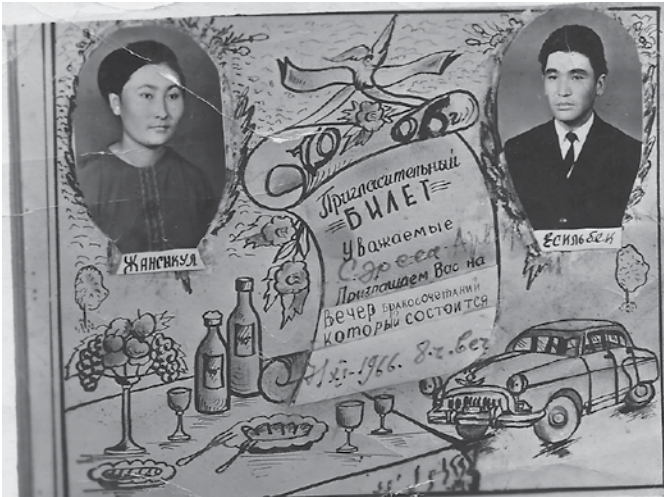 Жансикул
Есильбек
Пригласительный
БИЛЕТ
Уважаемые
Приглашаем Вас на
вечер бракосочетаний
который состоится
XI-1966. 8 ч. веч